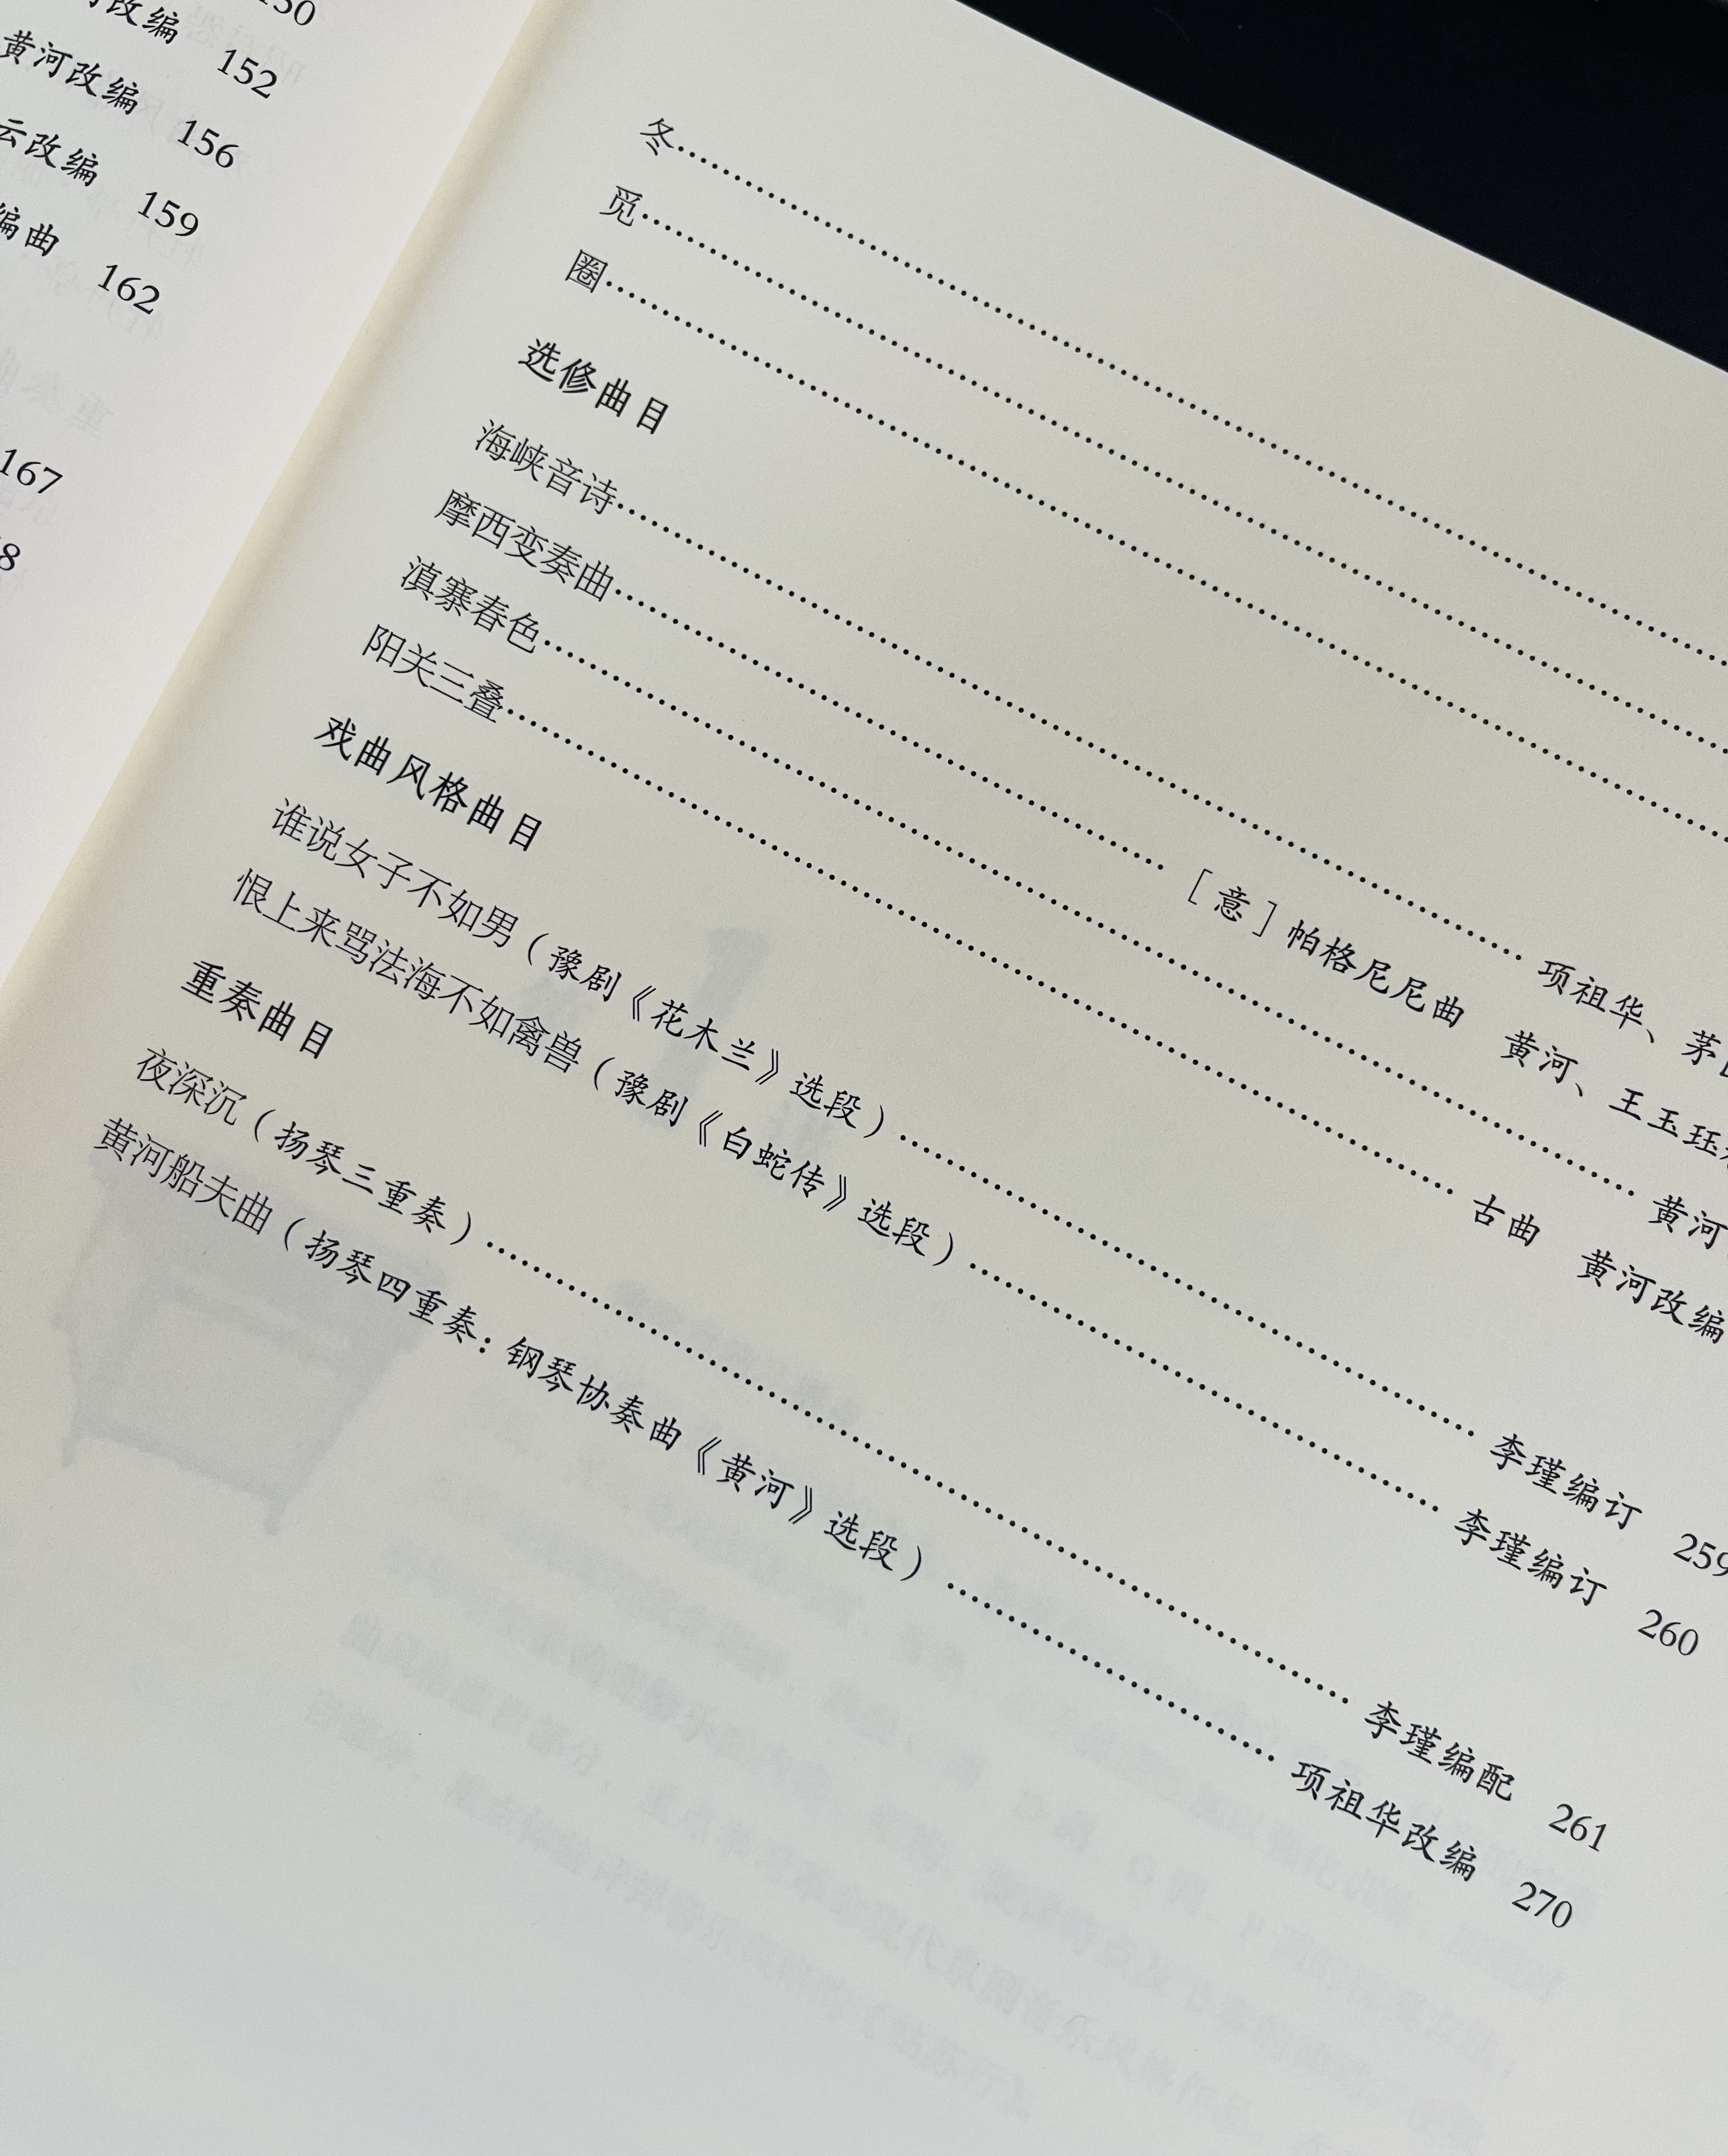 150
改编 152
黄河改编 156
云改编 159
编曲 162
167
8
冬
觅
圈
选修曲目
海峡音诗 项祖华、茅
摩西变奏曲 [意]帕格尼尼曲 黄河、王玉珏
滇寨春色 黄河
阳关三叠 古曲 黄河改编
戏曲风格曲目
谁说女子不如男（豫剧《花木兰》选段） 李瑾编订 259
恨上来骂法海不如禽兽（豫剧《白蛇传》选段） 李瑾编订 260
重奏曲目
夜深沉（扬琴三重奏） 李瑾编配 261
黄河船夫曲（扬琴四重奏：钢琴协奏曲《黄河》选段） 项祖华改编 270